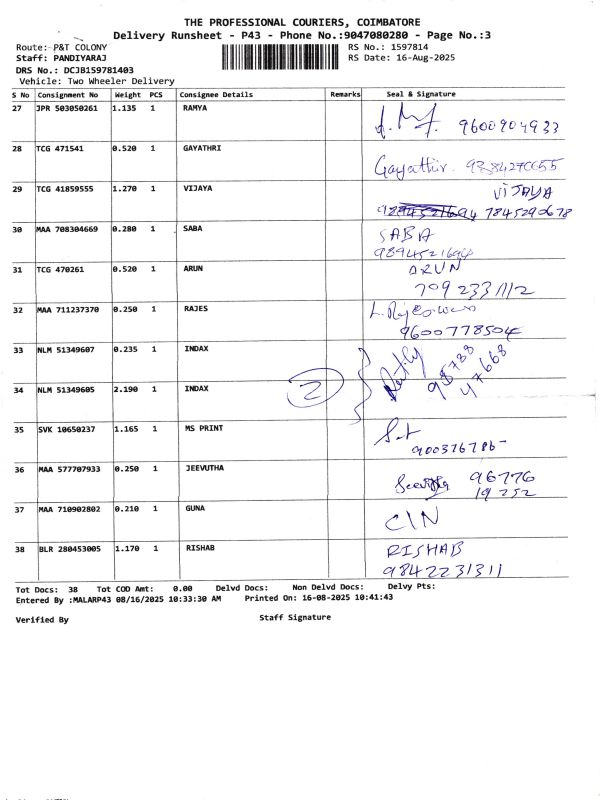 THE PROFESSIONAL COURIERS, COIMBATORE
Delivery Runsheet - P43 - Phone No.:9047080280 - Page No.:3
Route:- P&T COLONY RS No.: 1597814
Staff: PANDIYARAJ RS Date: 16-Aug-2025
DRS No.: DCJB159781403
Vehicle: Two Wheeler Delivery
S No Consignment No Weight PCS Consignee Details Remarks Seal & Signature
27 JPR 503050261 1.135 1 RAMYA
9600904933
28 TCG 471541 0.520 1 GAYATHRI
Gayathir. 9384270655
29 TCG 41859555 1.270 1 VIJAYA VIJAYA
7845290678
30 MAA 708304669 0.280 1 SABA SABA
9894521694
31 TCG 470261 0.520 1 ARUN ARUN
709 233 1112
32 MAA 711237370 0.250 1 RAJES L. Rajeswari
9600778504
33 NLM 51349607 0.235 1 INDAX
98788
47668
34 NLM 51349605 2.190 1 INDAX 2
35 SVK 10650237 1.165 1 MS PRINT
900376786
36 MAA 577707933 0.250 1 JEEVUTHA 96776
19252
37 MAA 710902802 0.210 1 GUNA CIN
38 BLR 280453005 1.170 1 RISHAB RISHAB
9842231311
Tot Docs: 38 Tot COD Amt: 0.00 Delvd Docs: Non Delvd Docs: Delvy Pts:
Entered By :MALARP43 08/16/2025 10:33:30 AM Printed On: 16-08-2025 10:41:43
Verified By Staff Signature